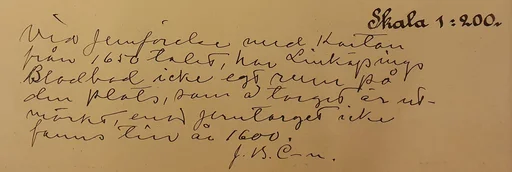 Skala 1:200.
Vid jemförelse med Kartan
från 1650 talet, har Linköpings
Blodbad icke egt rum på
den plats, som å torget är ut-
märkt, enär Jerntorget icke
fanns till år 1600.
J. B. C-n.